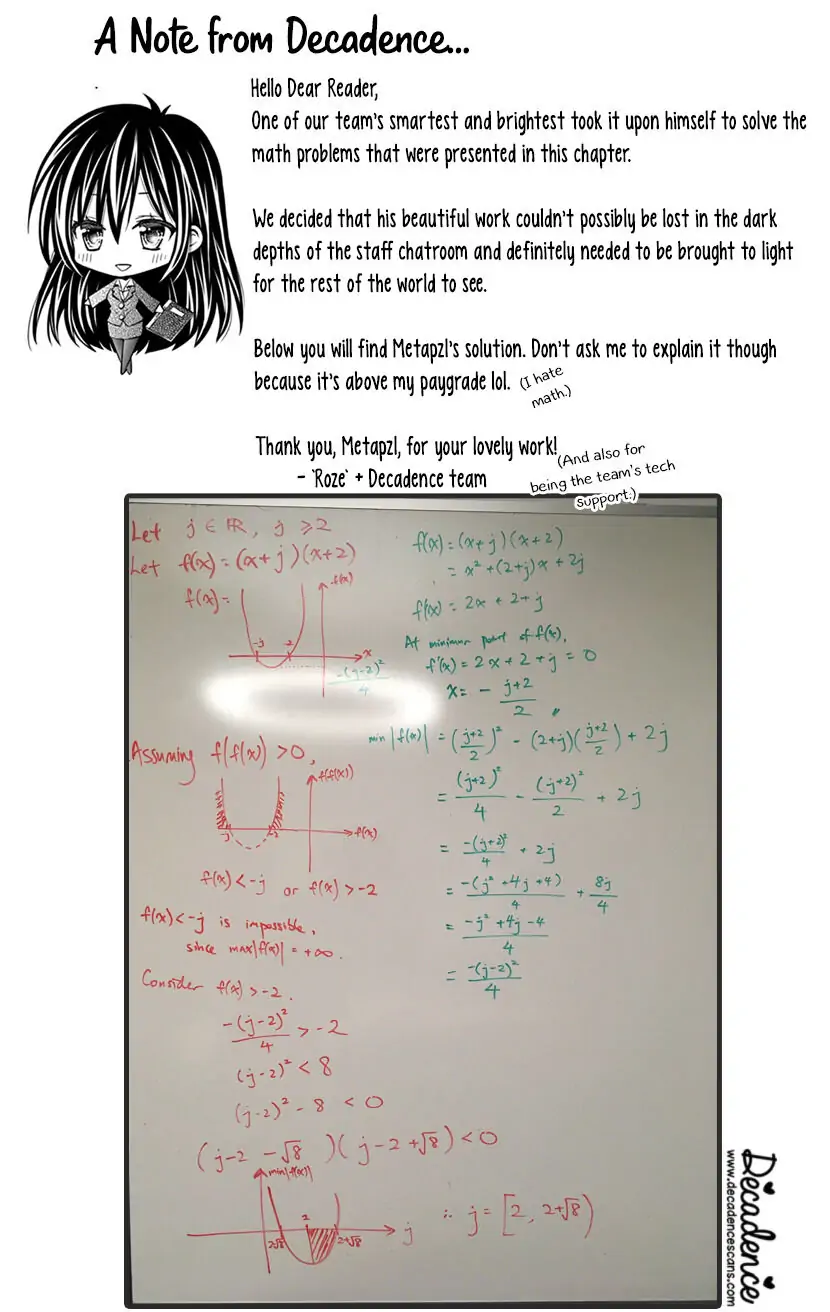 A Note from Decadence...
Hello Dear Reader,
One of our team's smartest and brightest took it upon himself to solve the
math problems that were presented in this chapter.
We decided that his beautiful work couldn't possibly be lost in the dark
depths of the staff chatroom and definitely needed to be brought to light
for the rest of the world to see.
Below you will find Metapzl's solution. Don't ask me to explain it though
because it's above my paygrade lol. (I hate
math.)
Thank you, Metapzl, for your lovely work!
- `Roze` + Decadence team
(And also for
being the team's tech
support.)
Let j ∈ ℝ, j ⩾ 2
Let f(x) = (x+j)(x+2)
f(x) =
f(x)
-j -2 x
-(j-2)²/4
Assuming f(f(x)) > 0,
f(f(x))
-j -2 f(x)
f(x) < -j or f(x) > -2
f(x) < -j is impossible,
since max|f(x)| = +∞.
Consider f(x) > -2.
-(j-2)²/4 > -2
(j-2)² < 8
(j-2)² - 8 < 0
(j-2 -√8)(j-2+√8) < 0
min|f(x)|
2 2+√8 j
∴ j = [2, 2+√8)
f(x) = (x+j)(x+2)
= x² + (2+j)x + 2j
f'(x) = 2x + 2+j
At minimum point of f(x),
f'(x) = 2x + 2 + j = 0
x = - (j+2)/2
min|f(x)| = ((j+2)/2)² - (2+j)((j+2)/2) + 2j
= (j+2)²/4 - (j+2)²/2 + 2j
= -(j+2)²/4 + 2j
= -(j²+4j+4)/4 + 8j/4
= (-j²+4j-4)/4
= -(j-2)²/4
Decadence
www.decadencescans.com